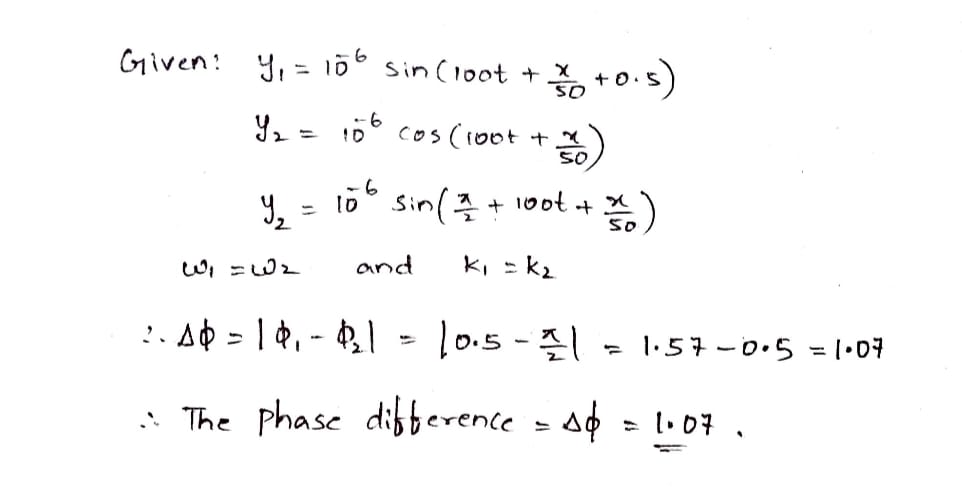 Given: y₁ = 10⁻⁶ sin(100t + x/50 + 0.5)
y₂ = 10⁻⁶ cos(100t + x/50)
y₂ = 10⁻⁶ sin(π/2 + 100t + x/50)
ω₁ = ω₂ and k₁ = k₂
∴ Δϕ = |ϕ₁ - ϕ₂| = |0.5 - π/2| = 1.57 - 0.5 = 1.07
∴ The phase difference = Δϕ = 1.07 .